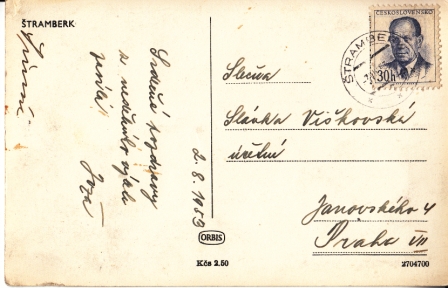 ŠTRAMBERK
Srdečné pozdravy
z nedělního výletu
posílá
Joža
2.8.1959
ORBIS
Kčs 2.50
ČESKOSLOVENSKO
30h
ŠTRAMBERK
Slečna
Slávka Viškovská
účetní
Janovského 4
Praha VII
2704700